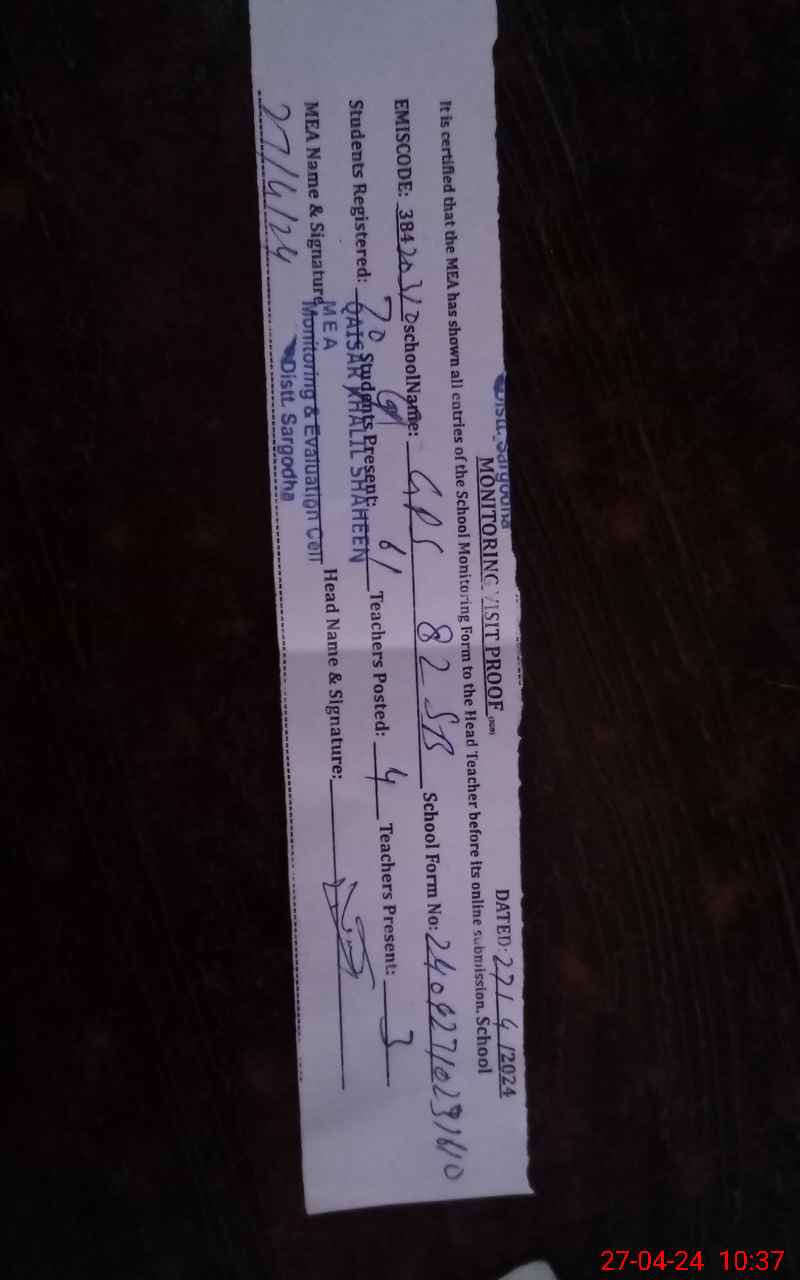 Distt. Sargodha
MONITORING VISIT PROOF
DATED: 27/4/2024
It is certified that the MEA has shown all entries of the School Monitoring Form to the Head Teacher before its online submission. School
EMISCODE: 38420310 schoolName: GPS 82 SB School Form No:
Students Registered: 70 Students Present: 61 Teachers Posted: 4 Teachers Present: 3
QAISAR KHALIL SHAHEEN
MEA Name & Signature Head Name & Signature:
MEA
Monitoring & Evaluation Cell
Distt. Sargodha
27/4/24
27-04-24 10:37